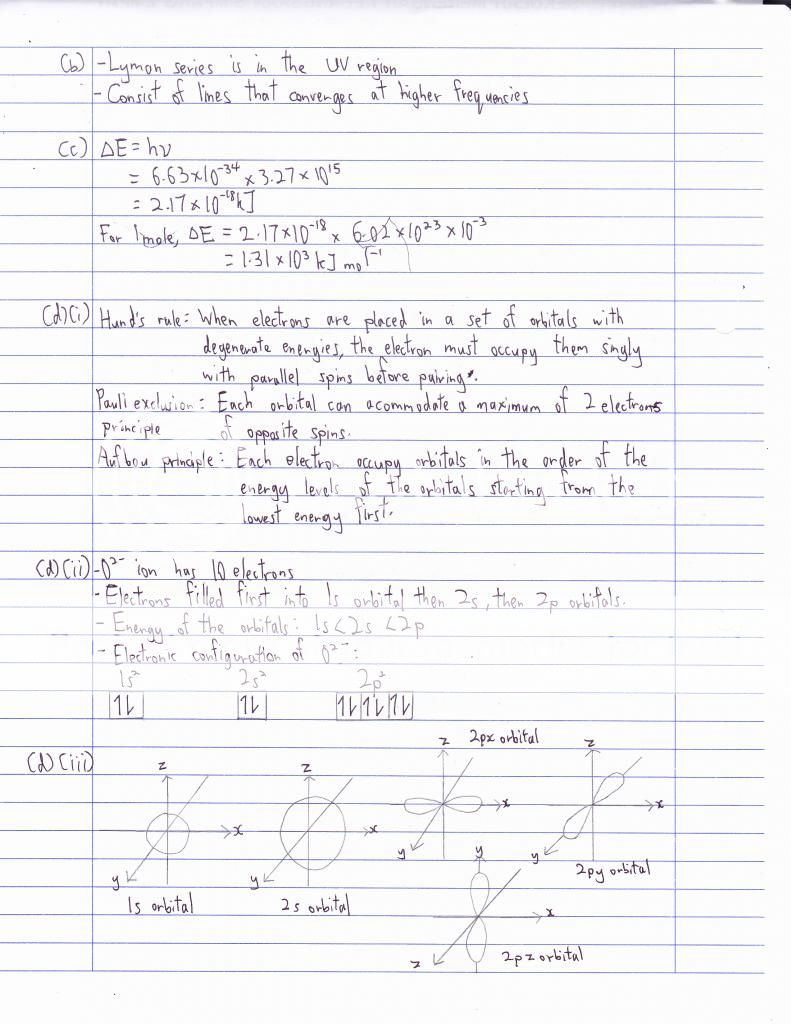 (b) - Lyman series is in the UV region
- Consist of lines that converges at higher frequencies
(c) ΔE = hν
= 6.63×10⁻³⁴ × 3.27 × 10¹⁵
= 2.17 × 10⁻¹⁸ kJ
For 1 mole, ΔE = 2.17×10⁻¹⁸ × 6.02 × 10²³ × 10⁻³
= 1.31 × 10³ kJ mol⁻¹
(d)(i) Hund's rule: When electrons are placed in a set of orbitals with
degenerate energies, the electron must occupy them singly
with parallel spins before pairing.
Pauli exclusion : Each orbital can acommodate a maximum of 2 electrons
principle of opposite spins.
Aufbau principle : Each electron occupy orbitals in the order of the
energy levels of the orbitals starting from the
lowest energy first.
(d)(ii) - O²⁻ ion has 10 electrons
- Electrons filled first into 1s orbital then 2s, then 2p orbitals.
- Energy of the orbitals : 1s < 2s < 2p
- Electronic configuration of O²⁻ :
1s² 2s² 2p²
1⇂ 1⇂ 1⇂ 1⇂ 1⇂
(d)(iii)
z
x
y
1s orbital
z
x
y
2s orbital
z 2px orbital
x
y
z
x
y
2py orbital
y
x
z
2pz orbital